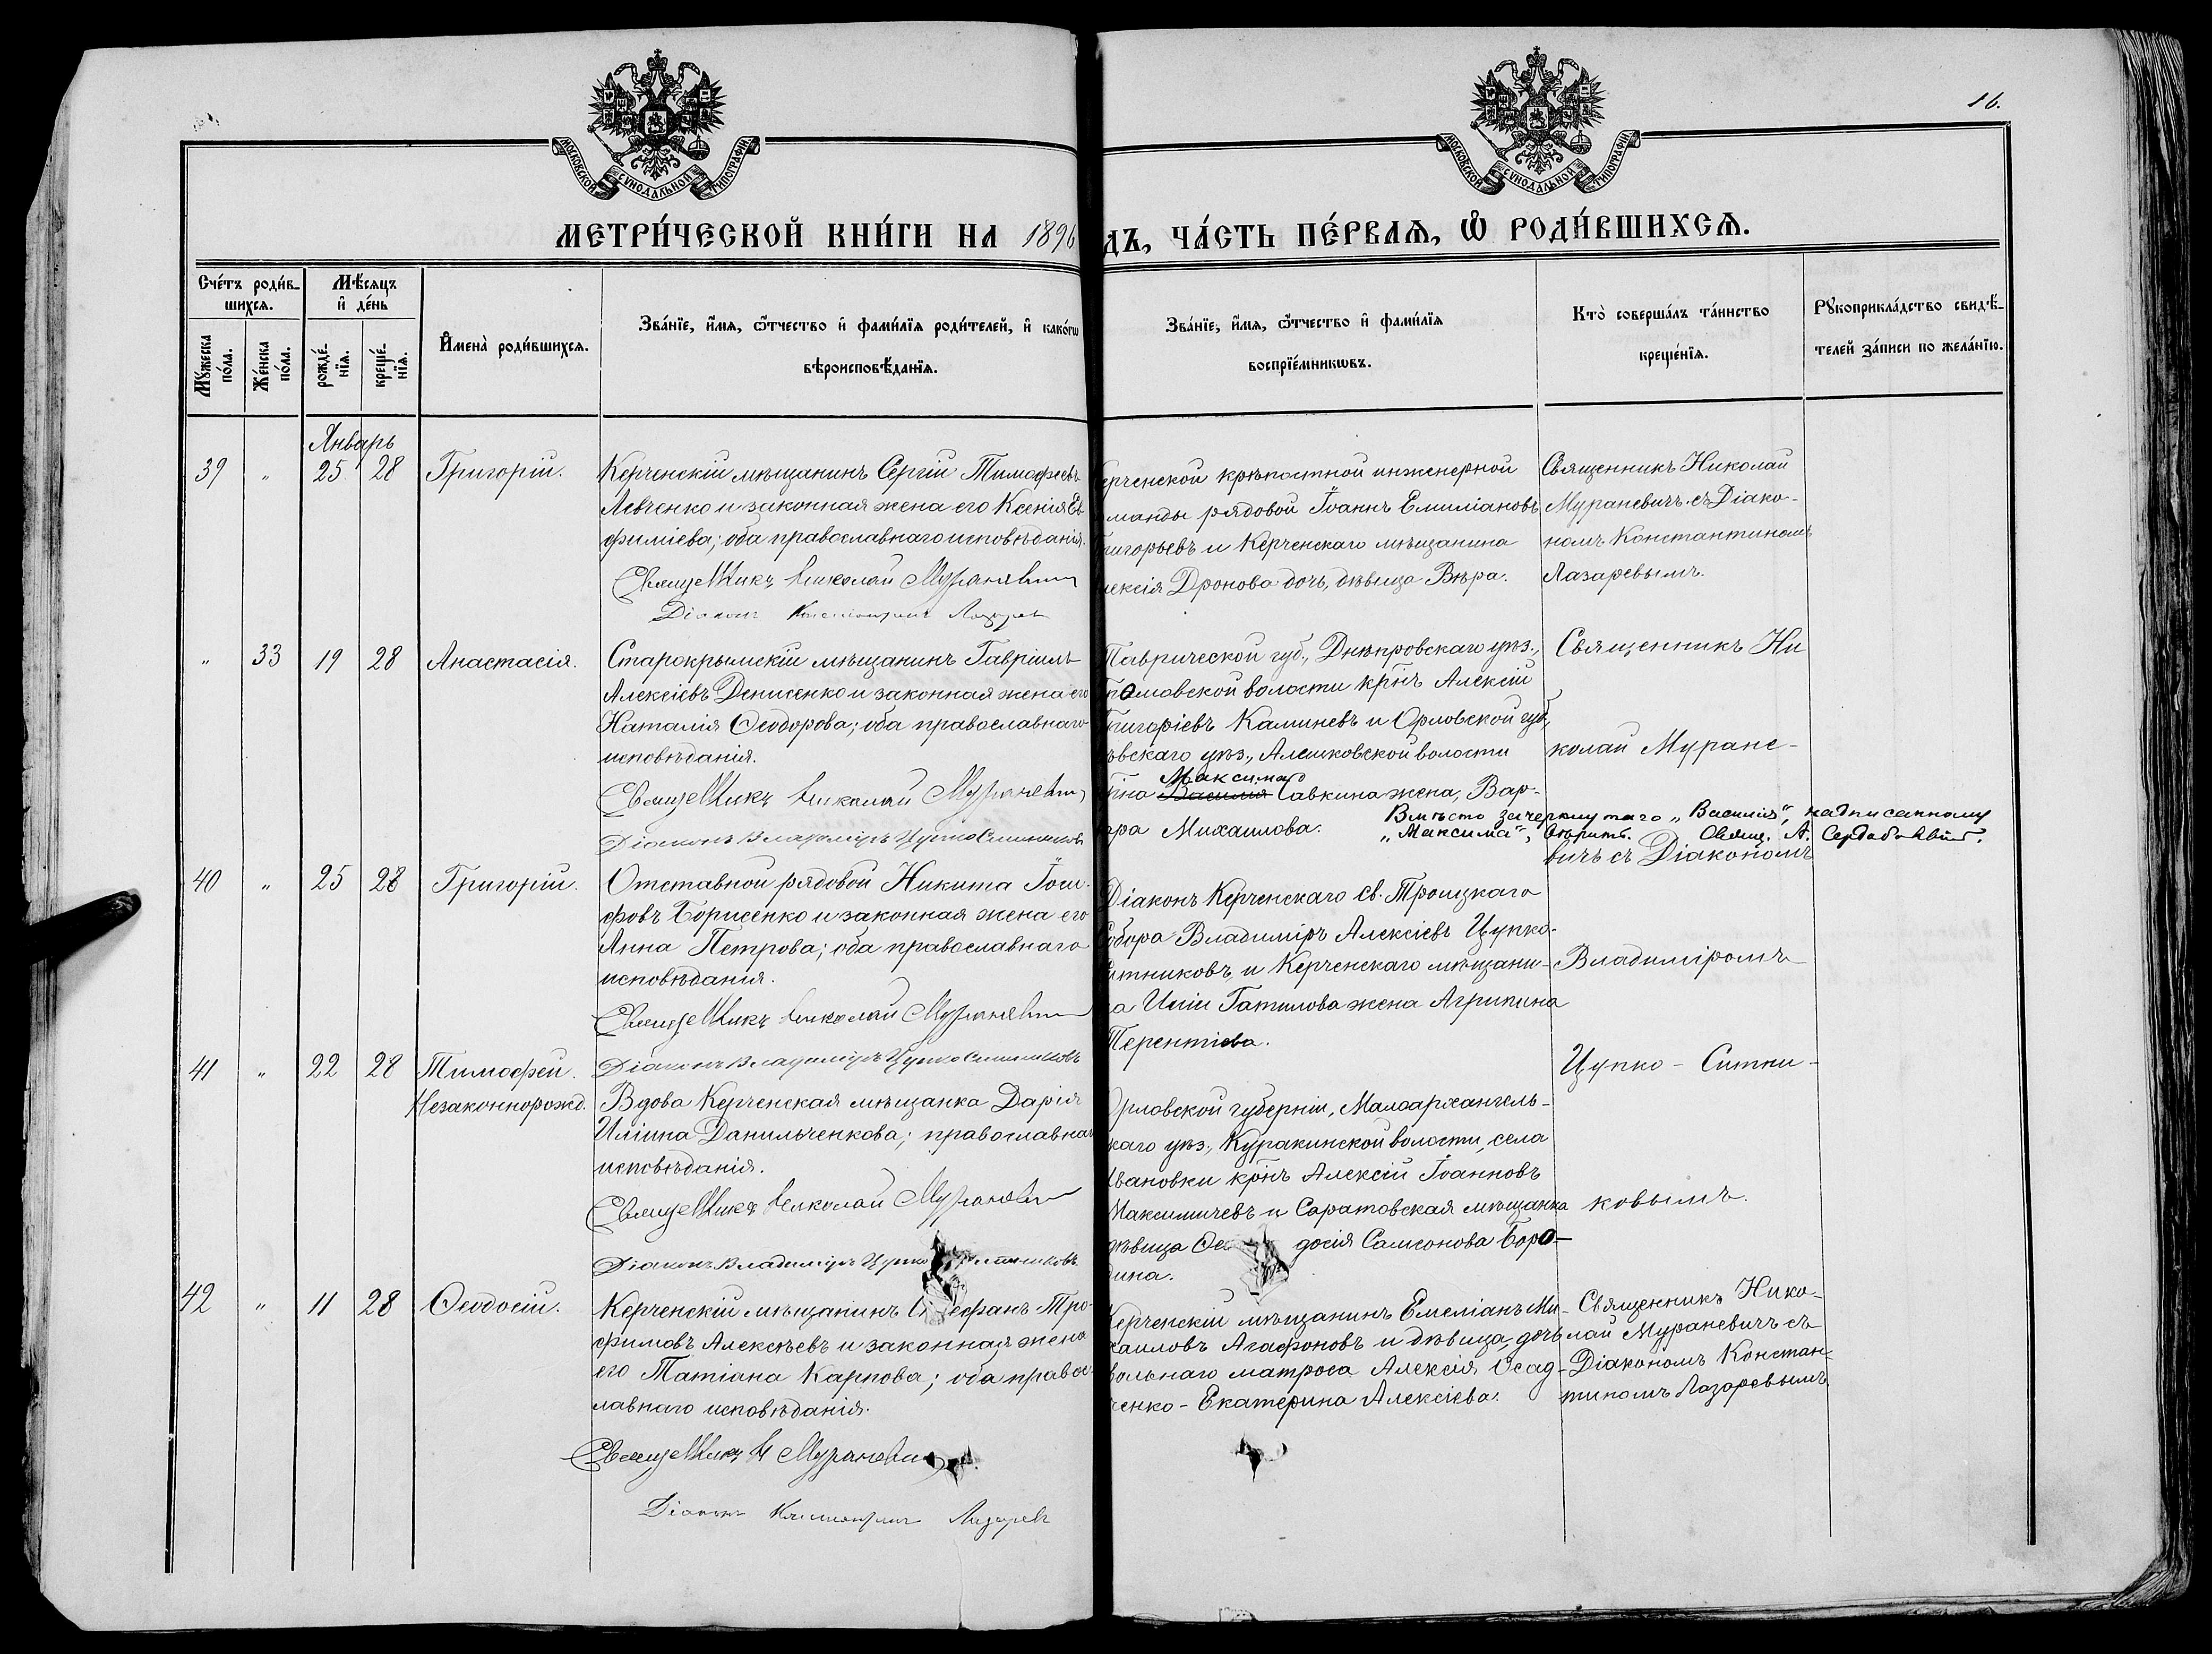 16.
МОСКОВСКОЙ СѴНОДАЛЬНОЙ ТИПОГРАФІИ
МОСКОВСКОЙ СѴНОДАЛЬНОЙ ТИПОГРАФІИ
МЕТРИ́ЧЕСКОЙ КНИ́ГИ НА 1896
ДЪ, ЧА́СТЬ ПЕ́РВАѦ, Ѽ РОДИ́ВШИХСѦ.
Счéтъ роди́в-
шихсѧ.
Мѣ́сѧцъ
и҆ де́нь
Мꙋ́жеска по́ла.
Же́нска по́ла.
рожде́-нїѧ.
креще́-нїѧ.
И҆мена̀ роди́вшихсѧ.
Зва́нїе, и҆́мѧ, ѻ҆́тчество и҆ фами́лїѧ роди́телей, и҆ како́гѡ
вѣроисповѣ́данїѧ.
Зва́нїе, и҆́мѧ, ѻ҆́тчество и҆ фами́лїѧ
воспрїе́мникѡвъ.
Кто̀ соверша́лъ та́инство
креще́нїѧ.
Рꙋкоприкла́дство свидѣ́-
телей за́писи по жела́нїю.
Январь
39 " 25 28 Григорій.
Керченскій мѣщанинъ Сергій Тимофеевъ
Левченко и законная жена его Ксенія Ев
фиміева; оба православнаго исповѣданія.
Священникъ Николай Мураневичъ
Діаконъ Константинъ Лазаревъ
ерченской крѣпостной инженерной
манды рядовой Іоаннъ Емиліановъ
ригорьевъ и Керченскаго мѣщанина
лексія Дронова дочь, дѣвица Вѣра.
Священникъ Николай
Мураневичъ съ Діако-
номъ Константиномъ
Лазаревымъ.
" 33 19 28 Анастасія.
Старокрымскій мѣщанинъ Гавріилъ
Алексіевъ Денисенко и законная жена его
Наталія Ѳеодорова; оба православнаго
исповѣданія.
Священникъ Николай Мураневичъ
Діаконъ Владиміръ Цупко Ситниковъ
Таврической губ., Днѣпровскаго уѣз.,
омовской волости крнъ Алексій
ригоріевъ Каминевъ и Орловской губ.,
овскаго уѣз., Алешковской волости
Максима
Василія Савкина жена, Вар-
ра Михаилова.
Вмѣсто зачеркнутаго „Василія", надписанному
„Максима", вѣрить. Свящ. А.
Священникъ Ни
колай Муране-
вичъ съ Діакономъ
40 " 25 28 Григорій.
Отставной рядовой Никита Іоси-
фовъ Борисенко и законная жена его
Анна Петрова; оба православнаго
исповѣданія.
Священникъ Николай Мураневичъ
Діаконъ Владиміръ Цупко Ситниковъ
Діаконъ Керченскаго Св. Троицкаго
обора Владиміръ Алексіевъ Цупко-
итниковъ, и Керченскаго мѣщани-
на Иліи Гатилова жена Агрипина
Терентіева.
Владиміромъ
41 " 22 28 Тимофей.
Незаконнорожд.
Вдова Керченская мѣщанка Дарія
Иліина Данильченкова; православнаг
исповѣданія.
Священникъ Николай Мураневичъ
Діаконъ Владиміръ Цупко Ситниковъ
Орловской губерніи, Малоархангель-
каго уѣз., Куракинской волости, села
вановки крнъ Алексій Іоанновъ
Максимичевъ и Саратовская мѣщанка
дѣвица Ѳео досія Самсонова Боро-
дина.
Цупко - Ситни-
ковымъ.
42 " 11 28 Ѳеодосій.
Керченскій мѣщанинъ Стефанъ Тро-
фимовъ Алексѣевъ и законная жена
его Татіана Карпова; оба правос-
лавнаго исповѣданія.
Священникъ Н Мураневичъ
Діаконъ Константинъ Лазаревъ
Керченскій мѣщанинъ Емеліанъ Ми-
хаиловъ Агафоновъ и дѣвица, дочь
вольнаго матроса Алексія Осад-
ченко - Екатерина Алексіева.
Священникъ Нико-
лай Мураневичъ съ
Діакономъ Констан-
тиномъ Лазаревымъ.